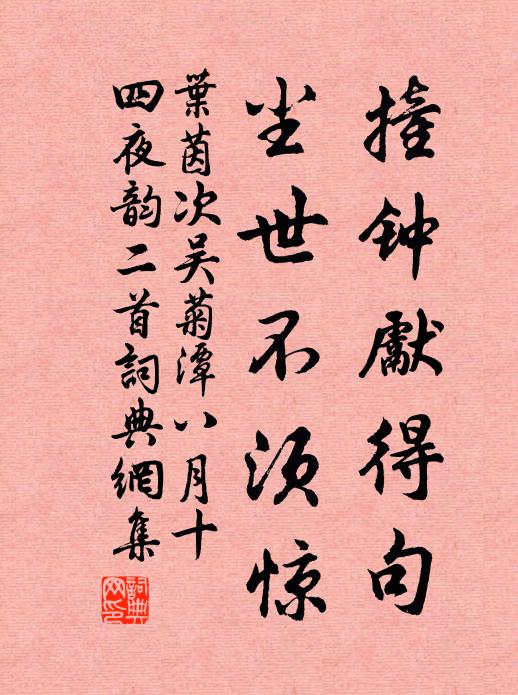 撞钟献得句
尘世不须惊
葉茵次吴菊潭八月十
四夜韵二首詞典網集
詞典网印